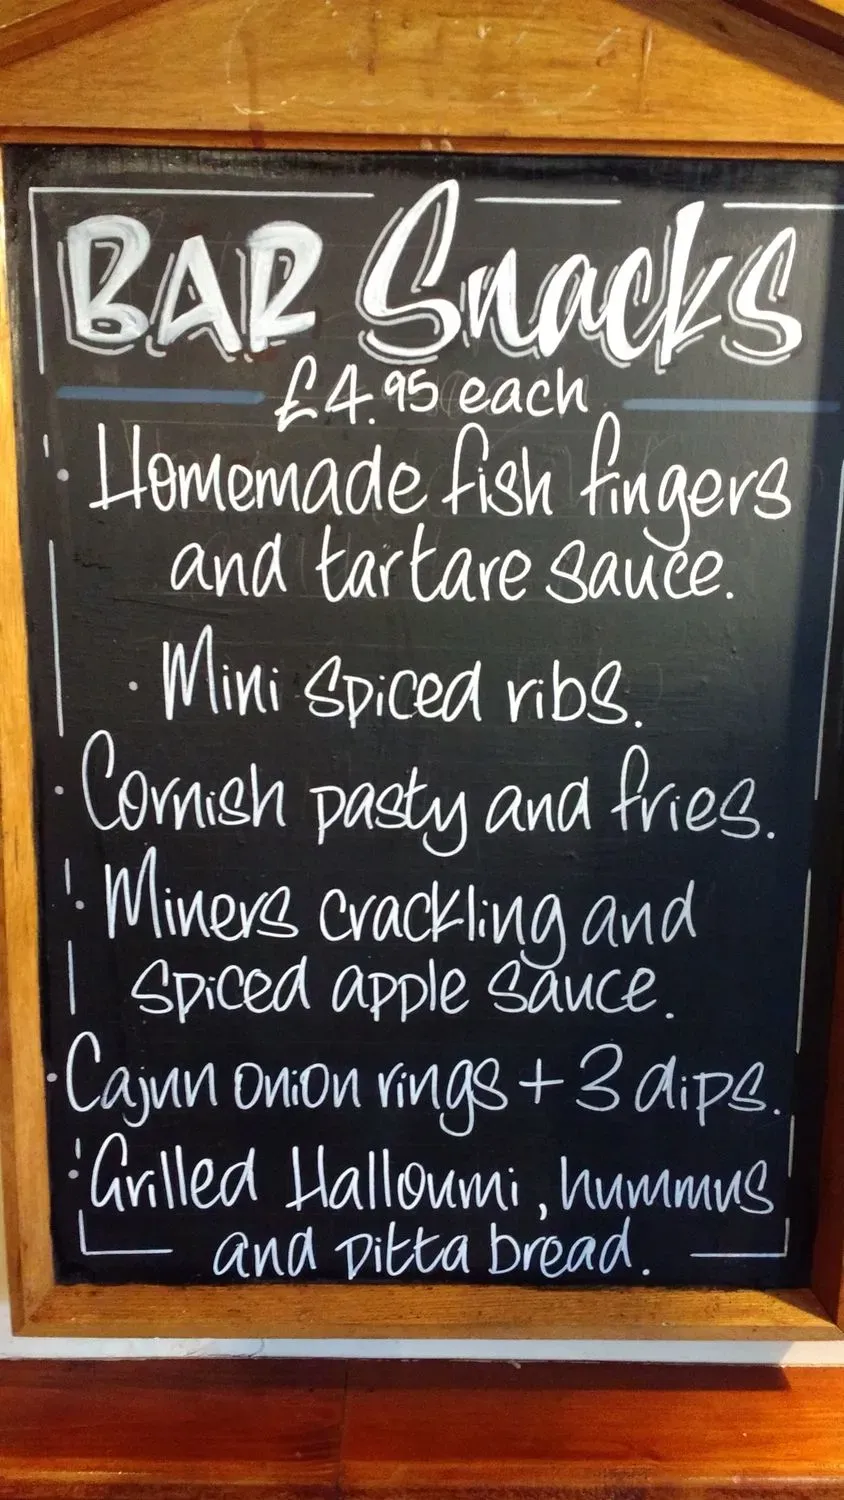 BAR Snacks
£4.95 each
· Homemade fish fingers
and tartare sauce.
· Mini spiced ribs.
· Cornish pasty and fries.
· Miners crackling and
spiced apple sauce.
· Cajun onion rings + 3 dips.
· Grilled Halloumi, hummus
and pitta bread.